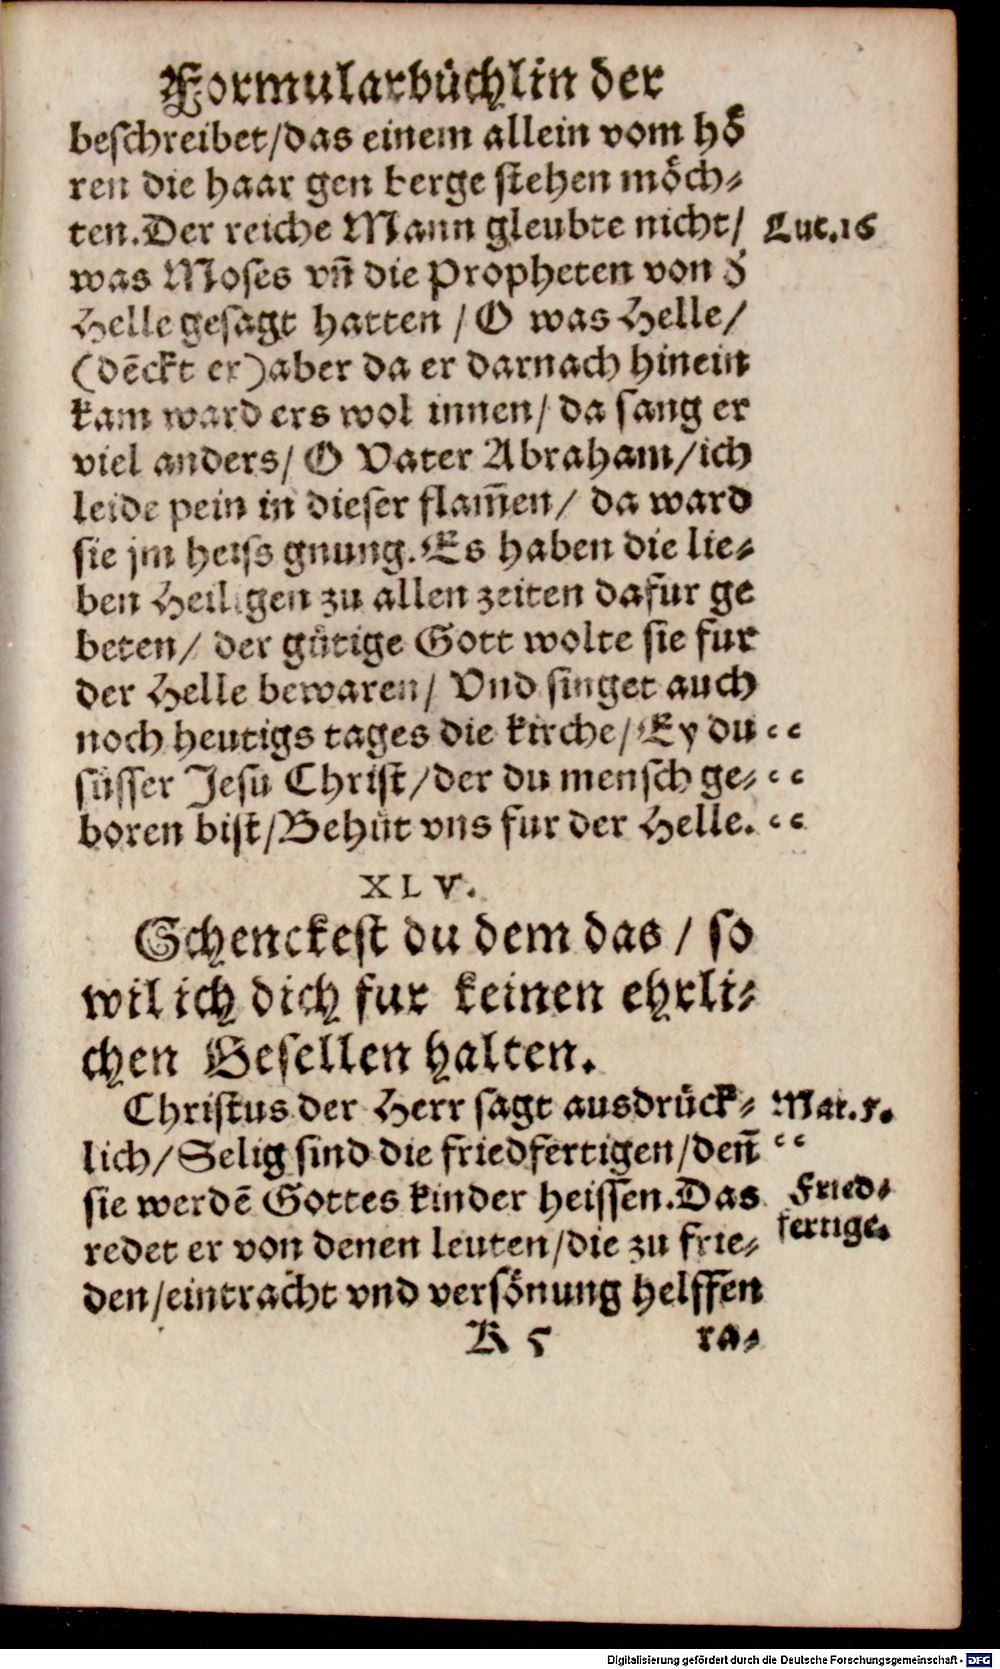 Formularbüchlin der
beschreibet/das einem allein vom hö
ren die haar gen berge stehen möch⸗
ten.Der reiche Mann gleubte nicht/ Luc.16
was Moses vñ die Propheten von d̕
Helle gesagt hatten / O was Helle/
(dẽckt er)aber da er darnach hinein
kam ward ers wol innen/ da sang er
viel anders/ O Vater Abraham/ich
leide pein in dieser flam̃en/ da ward
sie jm heiss gnung.Es haben die lie⸗
ben Heiligen zu allen zeiten dafur ge
beten/ der gütige Gott wolte sie fur
der Helle bewaren/ Vnd singet auch
noch heutigs tages die kirche/Ey du “
süsser Jesu Christ/der du mensch ge⸗ “
boren bist/Behüt vns fur der Helle. “
XLV.
Schenckest du dem das / so
wil ich dich fur keinen ehrli⸗
chen Gesellen halten.
Christus der Herr sagt ausdrück⸗ Mat.5.
lich/Selig sind die friedfertigen/deñ “
sie werdẽ Gottes kinder heissen.Das Fried⸗
redet er von denen leuten/die zu frie⸗ fertige.
den/eintracht vnd versönung helffen
K 5 ra⸗
Digitalisierung gefördert durch die Deutsche Forschungsgemeinschaft - DFG